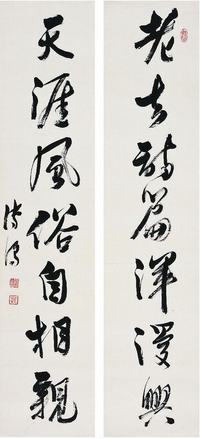 老去詩篇渾漫興
天涯風俗自相親
溥儒